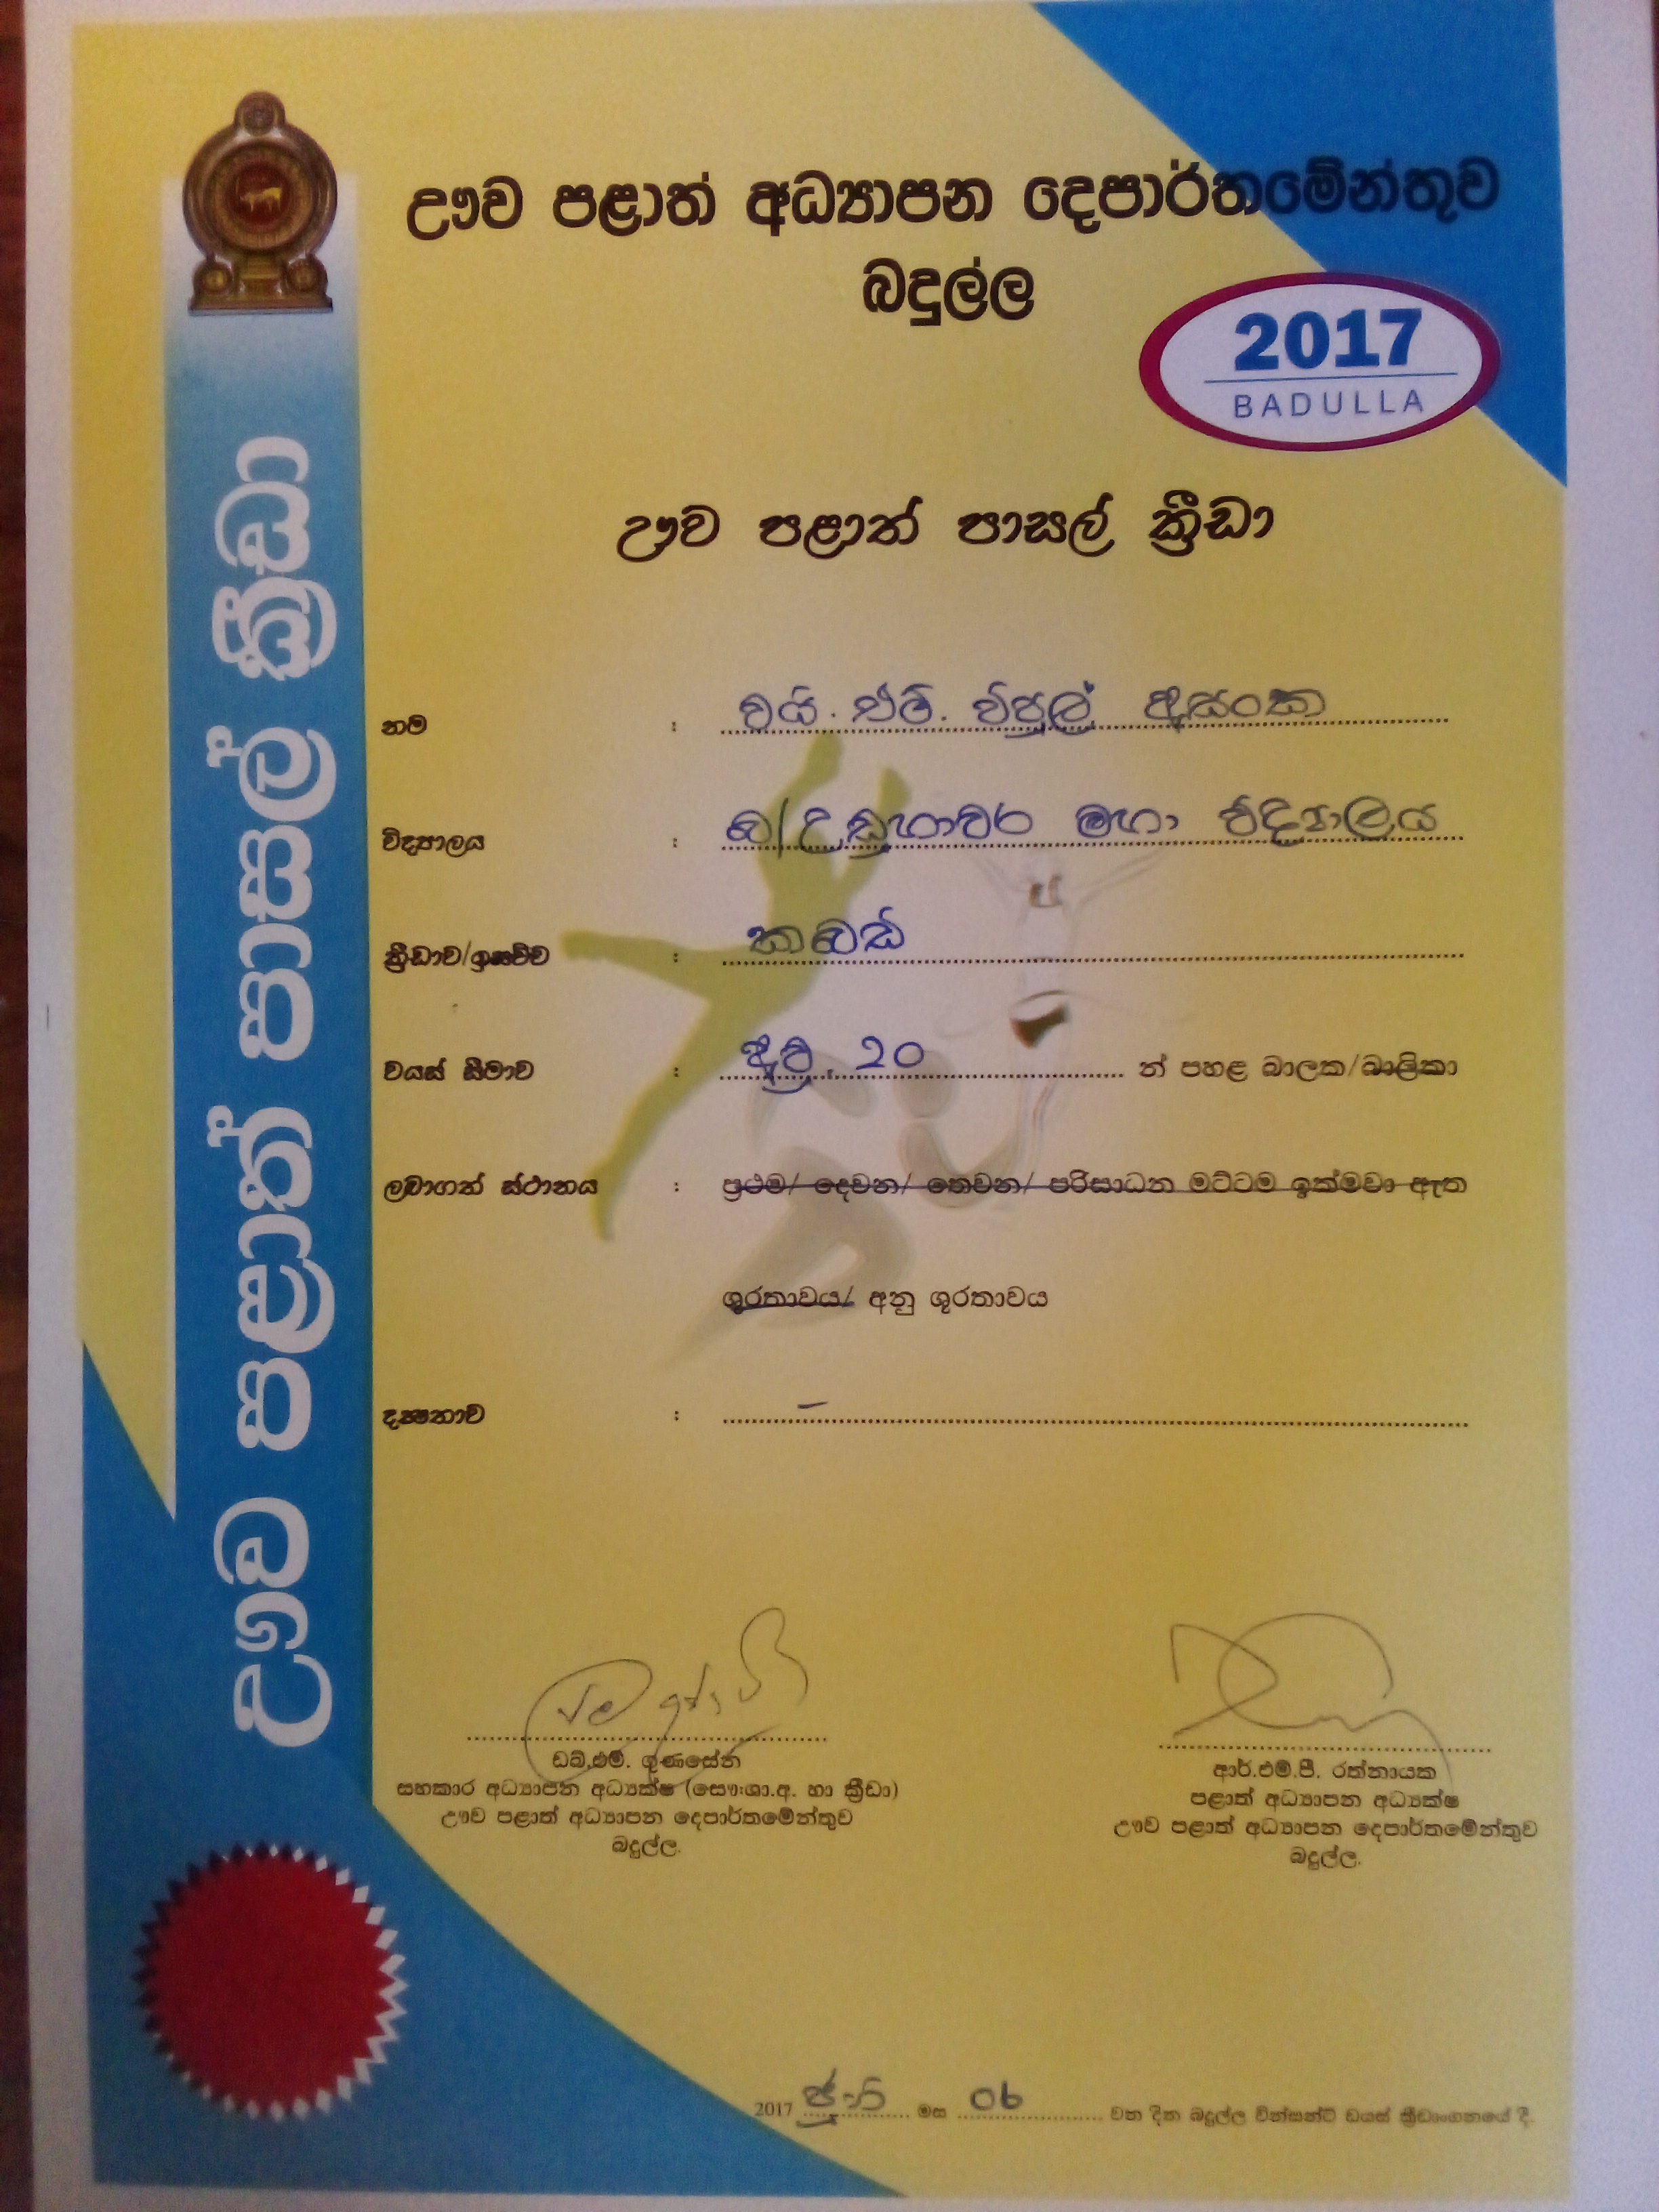 ඌව පළාත් අධ්‍යාපන දෙපාර්තමේන්තුව
බදුල්ල
2017
BADULLA
ඌව පළාත් පාසල් ක්‍රීඩා
ඌව පළාත් පාසල් ක්‍රීඩා
නම : වයි. එම්. විපුල් අසංක
විද්‍යාලය : බ/උඩුහාවර මහා විද්‍යාලය
ක්‍රීඩාව/ඉසව්ව : කබඩි
වයස් සීමාව : අවු. 20 න් පහළ බාලක/බාලිකා
ලබාගත් ස්ථානය : ප්‍රථම/ දෙවන/ තෙවන/ පරිසාධන මට්ටම ඉක්මවා ඇත
ශූරතාවය/ අනු ශූරතාවය
දක්ෂතාව : –
ඩබ්.එම්. ගුණසේන
සහකාර අධ්‍යාපන අධ්‍යක්ෂ (සෞ:ශා.අ. හා ක්‍රීඩා)
ඌව පළාත් අධ්‍යාපන දෙපාර්තමේන්තුව
බදුල්ල.
ආර්.එම්.පී. රත්නායක
පළාත් අධ්‍යාපන අධ්‍යක්ෂ
ඌව පළාත් අධ්‍යාපන දෙපාර්තමේන්තුව
බදුල්ල.
2017 ජූනි මස 06 වන දින බදුල්ල වින්සන්ට් ඩයස් ක්‍රීඩාංගනයේ දී.